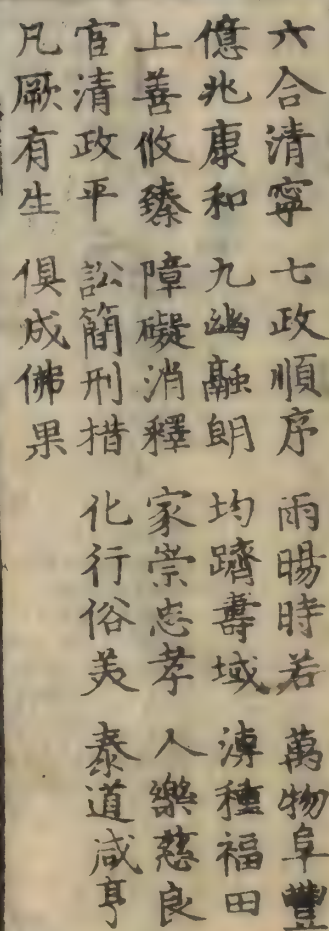 六合清寧 七政順序 雨暘時若 萬物阜豐
億兆康和 九幽融朗 均躋壽域 溥種福田
上善攸臻 障礙消釋 家崇忠孝 人樂慈良
官清政平 訟簡刑措 化行俗美 泰道咸亨
凡厥有生 俱成佛果